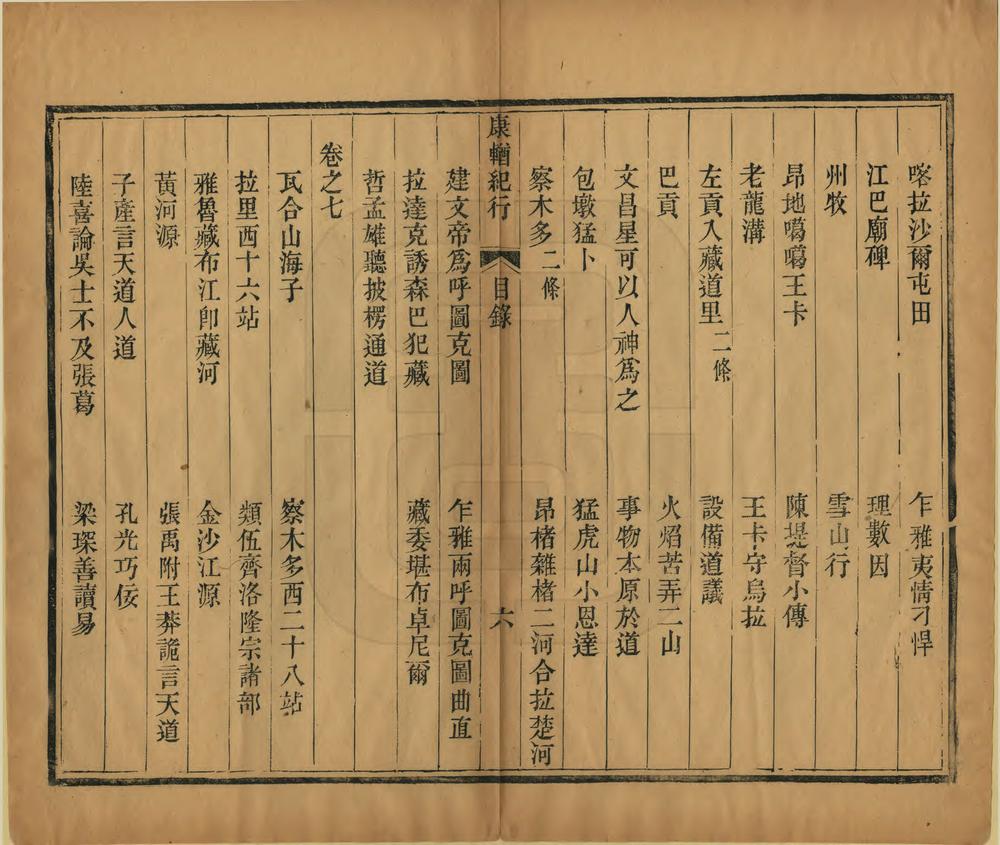 喀拉沙爾屯田　乍雅夷情刁悍
江巴廟碑　理數因
州牧　雪山行
昂地噶噶王卡　陳堤督小傳
老龍溝　王卡守烏拉
左貢入藏道里二條　設備道議
巴貢　火焰苦弄二山
文昌星可以人神爲之　事物本原於道
包墩猛卜　猛虎山小恩達
察木多二條　昂楮雜楮二河合拉楚河
康輶紀行　目錄　六
建文帝爲呼圖克圖　乍雅兩呼圖克圖曲直
拉達克誘森巴犯藏　藏委堪布卓尼爾
哲孟雄聽披楞通道
卷之七
瓦合山海子　察木多西二十八站
拉里西十六站　類伍齊洛隆宗諸部
雅魯藏布江卽藏河　金沙江源
黃河源　張禹附王莽詭言天道
子產言天道人道　孔光巧佞
陸喜論吳士不及張葛　梁琛善讀易